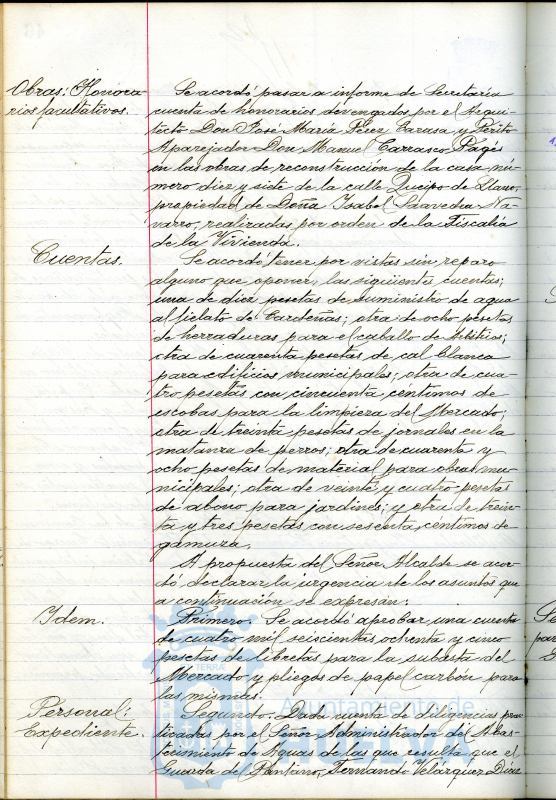 Obras: Honora-
rios facultativos.
Se acordó pasar a informe de Secretaría
cuenta de honorarios devengados por el Arqui-
tecto Don José María Pérez Carasa y Perito
Aparejador Don Manuel Carrasco Pagés
en las obras de reconstrucción de la casa nú-
mero diez y siete de la calle Queipo de Llano,
propiedad de Doña Isabel Saavedra Na-
varro, realizadas por orden de la Fiscalía
de la Vivienda.
Cuentas.
Se acordó tener por vistas sin reparo
alguno que oponer, las siguientes cuentas;
una de diez pesetas de suministro de agua
al de Cardeñas; otra de ocho pesetas
de herraduras para el caballo de
otra de cuarenta pesetas de cal blanca
para edificios municipales; otra de cua-
tro pesetas con cincuenta céntimos de
escobas para la limpieza del Mercado;
otra de treinta pesetas de jornales en la
matanza de perros; otra de cuarenta y
ocho pesetas de material para obras mu-
nicipales; otra de veinte y cuatro pesetas
de abono para jardines; y otra de trein-
ta y tres pesetas con sesenta céntimos de
gamuza.
A propuesta del Señor Alcalde se acor-
dó declarar la urgencia de los asuntos que
a continuación se expresan:
Idem.
Primero. Se acordó aprobar una cuenta
de cuatro mil seiscientas ochenta y cinco
pesetas de libretas para la subasta del
Mercado y pliegos de papel carbón para
las mismas.
Personal:
Expediente.
Segundo. Dada cuenta de diligencias prac-
ticadas por el Señor Administrador del Abas-
tecimiento de Aguas de las que resulta que el
Guarda de Pantano, Fernando Velázquez Díaz
TERRA
Ayuntamiento de